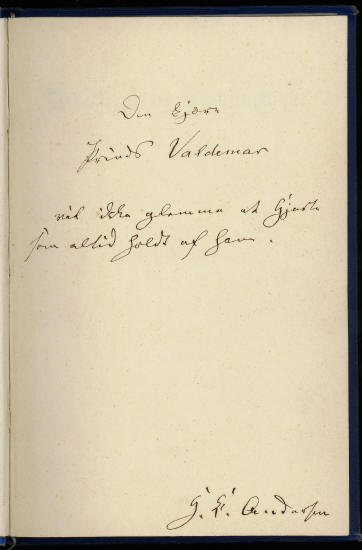 Den kjære
Prinds Valdemar
vil ikke glemme et Hjerte
som altid holdt af ham.
H. C. Andersen